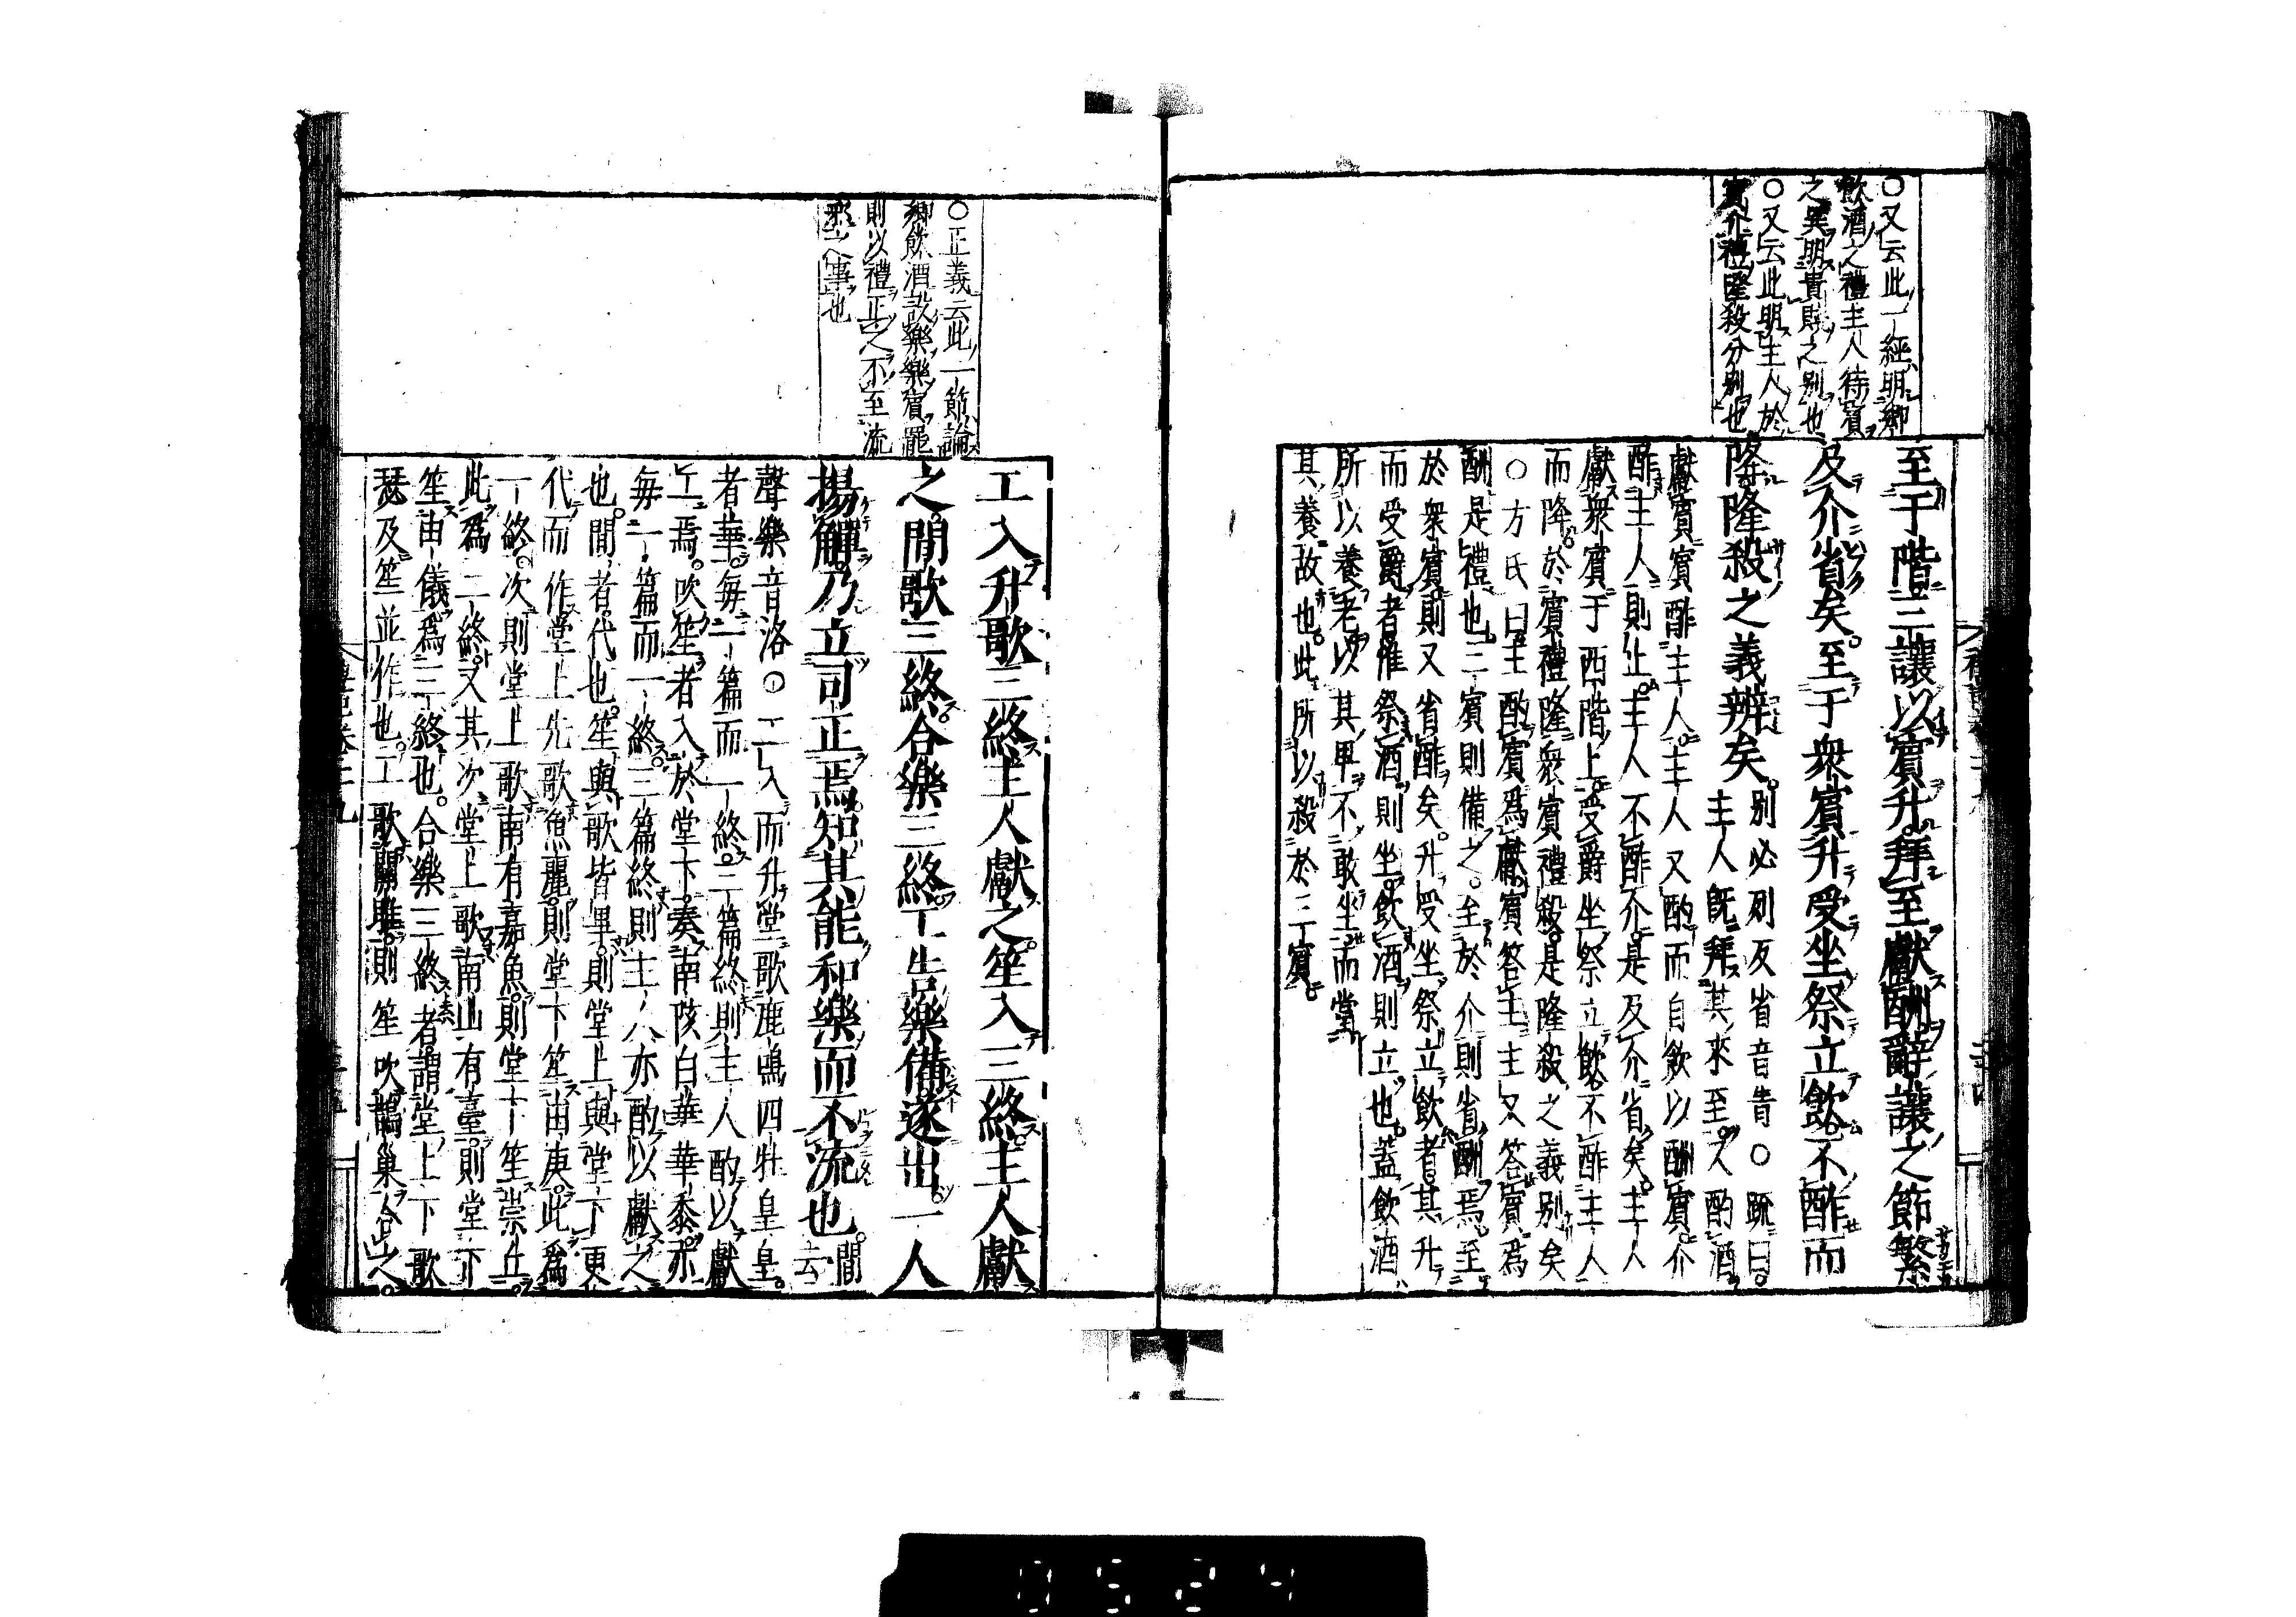 ○又云此一經明鄉
飲酒之禮主人待賓
之異明貴賤之別也
○又云此明主人於
賓介禮隆殺分別也
至于階三讓以賓升拜至獻酬辭讓之節繁
及介省矣至于衆賓升受坐祭立飲不酢而
降隆殺之義辨矣
別必列反省音眚○疏曰
主人旣拜其來至又酌酒
獻賓賓酢主人主人又酌而自飮以酬賓介
酢主人則止主人不酢介是及介省矣主人
獻衆賓于西階上受爵坐祭立飮不酢主人
而降於賓禮隆衆賓禮殺是隆殺之義別矣
○方氏曰主酌賓爲獻賓答主主又答賓爲
酬是禮也三賓則備之至於介則省酬焉至
於衆賓則又省酢矣升受坐祭立飮者其升
而受爵者惟祭酒則坐飮酒則立也蓋飮酒
所以養老以其卑不敢坐而當
其養故也此所以殺於三賓
○正義云此一節論
鄉飲酒設樂樂賓罷
則以禮正之不至流
邪之事也
工入升歌三終主人獻之笙入三終主人獻
之間歌三終合樂三終工告樂備遂出一人
揚觶乃立司正焉知其能和樂而不流也
間去
聲樂音洛○工入而升堂歌鹿鳴四牡皇皇
者華每一篇而一終三篇終則主人酌以獻
工焉吹笙者入於堂下奏南陔白華華黍亦
每一篇而一終三篇終則主人亦酌以獻之
也間者代也笙與歌皆畢則堂上與堂下更
代而作堂上先歌魚麗則堂下笙由庚此爲
一終次則堂上歌南有嘉魚則堂下笙崇丘
此爲二終又其次堂上歌南山有臺則堂下
笙由儀爲三終也合樂三終者謂堂上下歌
瑟及笙並作也工歌關雎則笙吹鵲巢合之